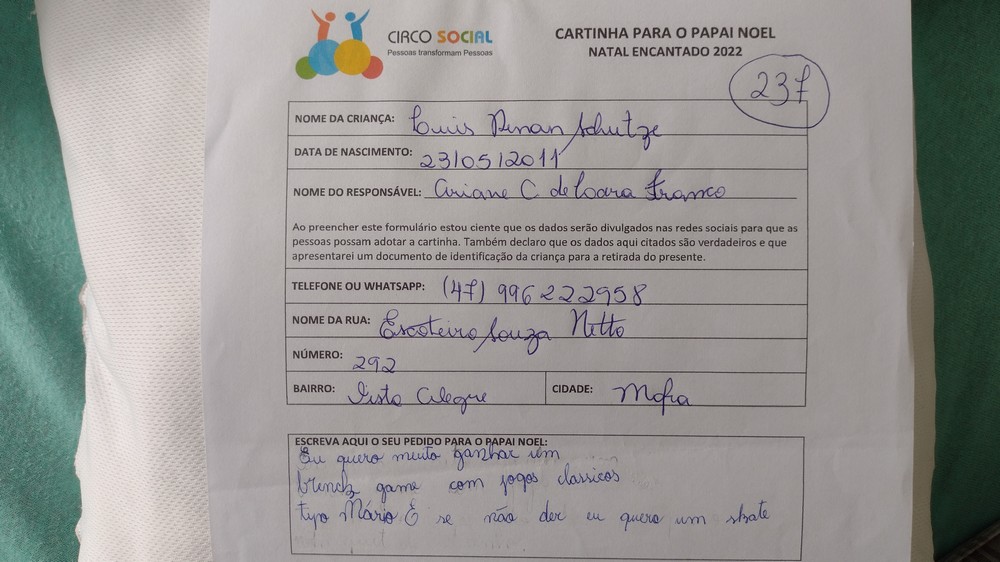 CIRCO SOCIAL
Pessoas transformam Pessoas
CARTINHA PARA O PAPAI NOEL
NATAL ENCANTADO 2022
237
NOME DA CRIANÇA: Luis Renan Schutze
DATA DE NASCIMENTO: 23/05/2011
NOME DO RESPONSÁVEL: Ariane C de Franco
Ao preencher este formulário estou ciente que os dados serão divulgados nas redes sociais para que as
pessoas possam adotar a cartinha. Também declaro que os dados aqui citados são verdadeiros e que
apresentarei um documento de identificação da criança para a retirada do presente.
TELEFONE OU WHATSAPP: (47) 996222958
NOME DA RUA: Escoteiro Souza Netto
NÚMERO: 292
BAIRRO: Vista Alegre CIDADE: Mafra
ESCREVA AQUI O SEU PEDIDO PARA O PAPAI NOEL:
Eu quero muito ganhar um
game com jogos classicos
tipo Mário E se não der eu quero um skate